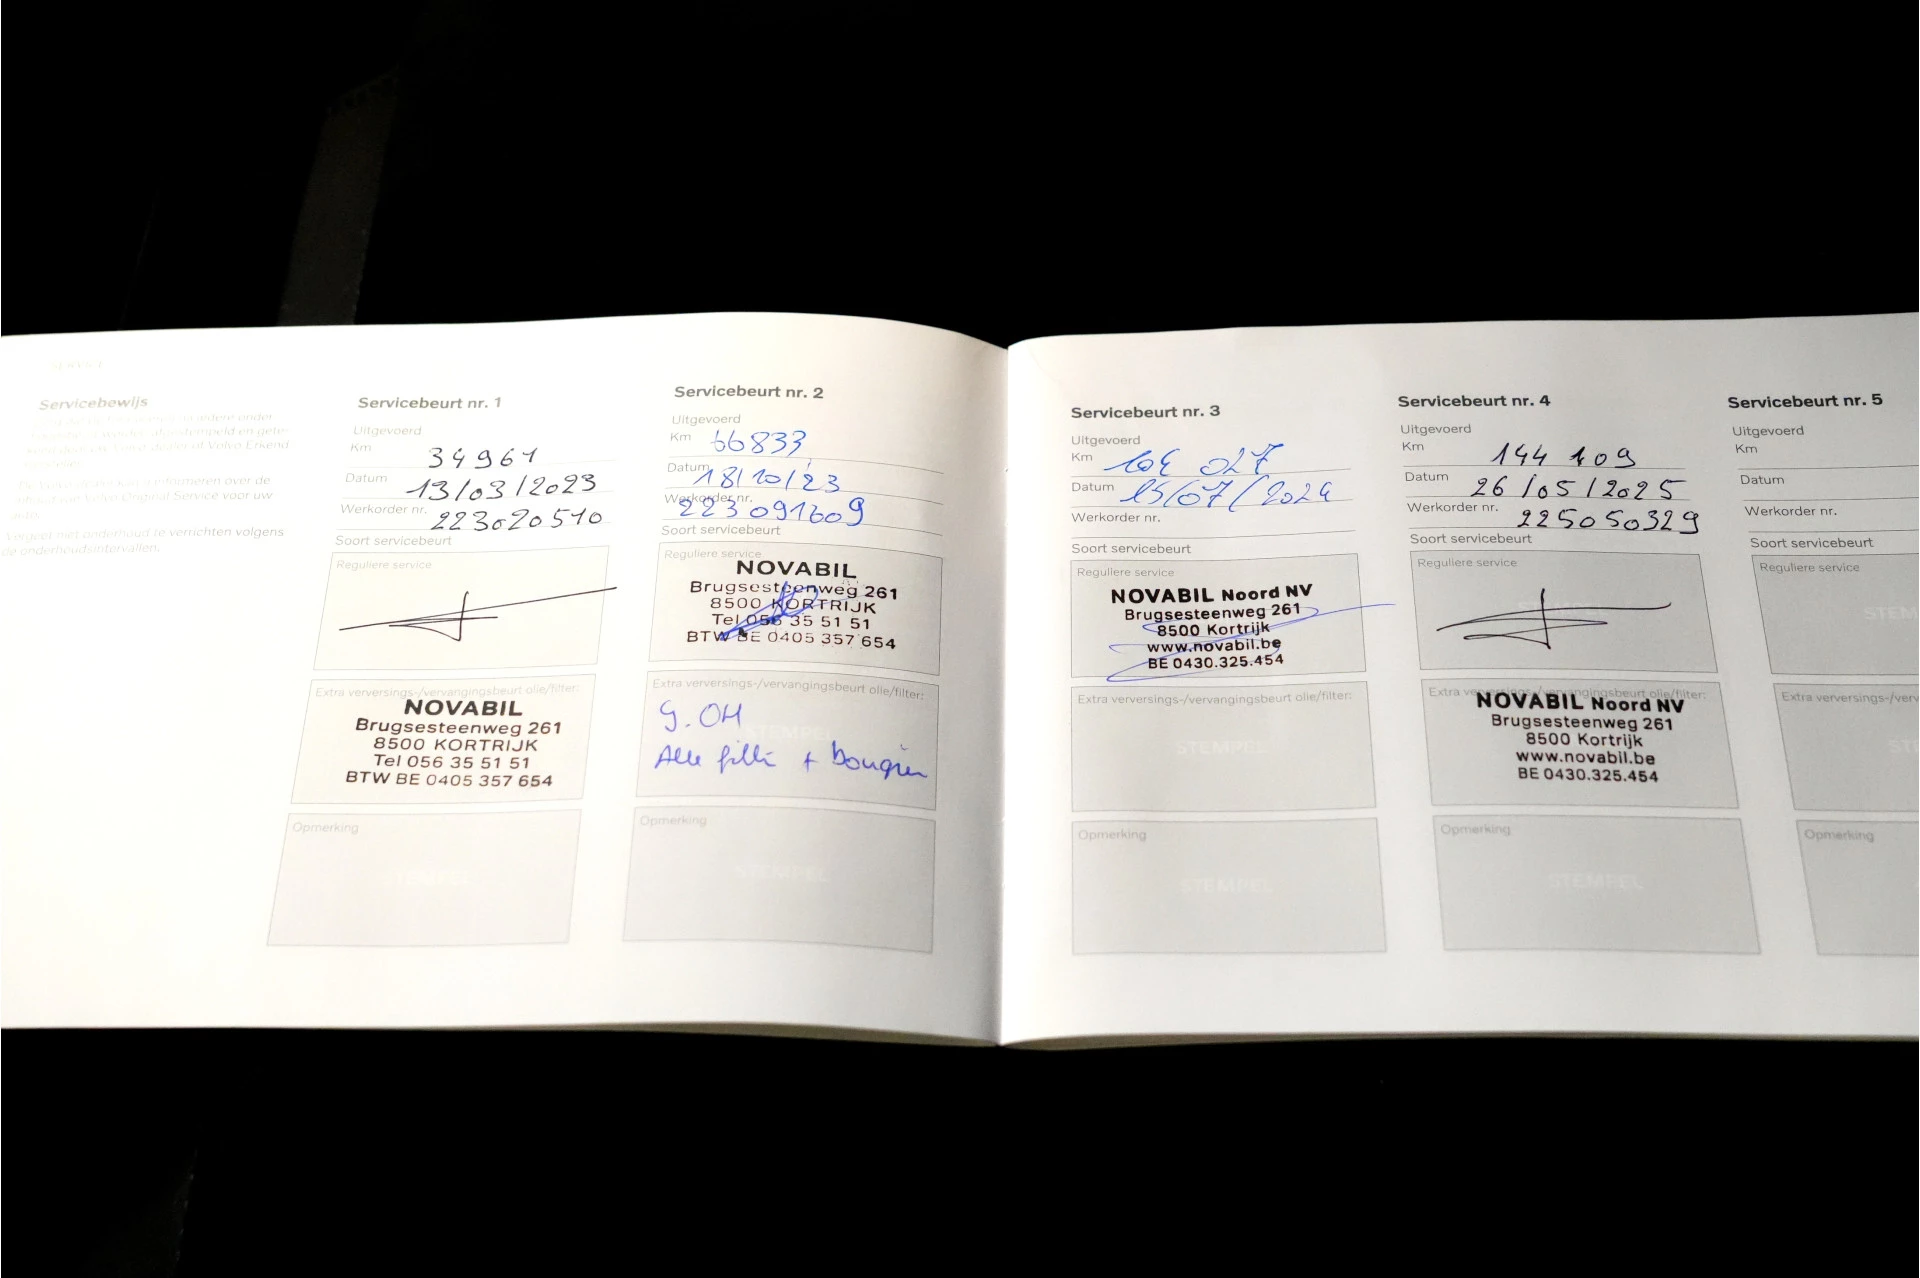 SERVICE
Servicebewijs
de onderhoudsintervallen.
Servicebeurt nr. 1
Uitgevoerd
Km 34961
Datum 13/03/2023
Werkorder nr. 223020510
Soort servicebeurt
Reguliere service
Extra verversings-/vervangingsbeurt olie/filter:
NOVABIL
Brugsesteenweg 261
8500 KORTRIJK
Tel 056 35 51 51
BTW BE 0405 357 654
Opmerking
STEMPEL
Servicebeurt nr. 2
Uitgevoerd
Km 66833
Datum 18/10/23
Werkorder nr. 223091609
Soort servicebeurt
Reguliere service
NOVABIL
Brugsesteenweg 261
8500 KORTRIJK
Tel 056 35 51 51
BTW BE 0405 357 654
Extra verversings-/vervangingsbeurt olie/filter:
G.OH
STEMPEL
Alle filti + bougies
Opmerking
STEMPEL
Servicebeurt nr. 3
Uitgevoerd
Km 027
Datum 15/07/2024
Werkorder nr.
Soort servicebeurt
Reguliere service
NOVABIL Noord NV
Brugsesteenweg 261
8500 Kortrijk
www.novabil.be
BE 0430.325.454
Extra verversings-/vervangingsbeurt olie/filter:
STEMPEL
Opmerking
STEMPEL
Servicebeurt nr. 4
Uitgevoerd
Km 144 109
Datum 26/05/2025
Werkorder nr. 225050329
Soort servicebeurt
Reguliere service
STEMPEL
Extra verversings-/vervangingsbeurt olie/filter:
NOVABIL Noord NV
Brugsesteenweg 261
8500 Kortrijk
www.novabil.be
BE 0430.325.454
Opmerking
STEMPEL
Servicebeurt nr. 5
Uitgevoerd
Km
Datum
Werkorder nr.
Soort servicebeurt
Reguliere service
STEM
Extra verversings-/verv
ST
Opmerking